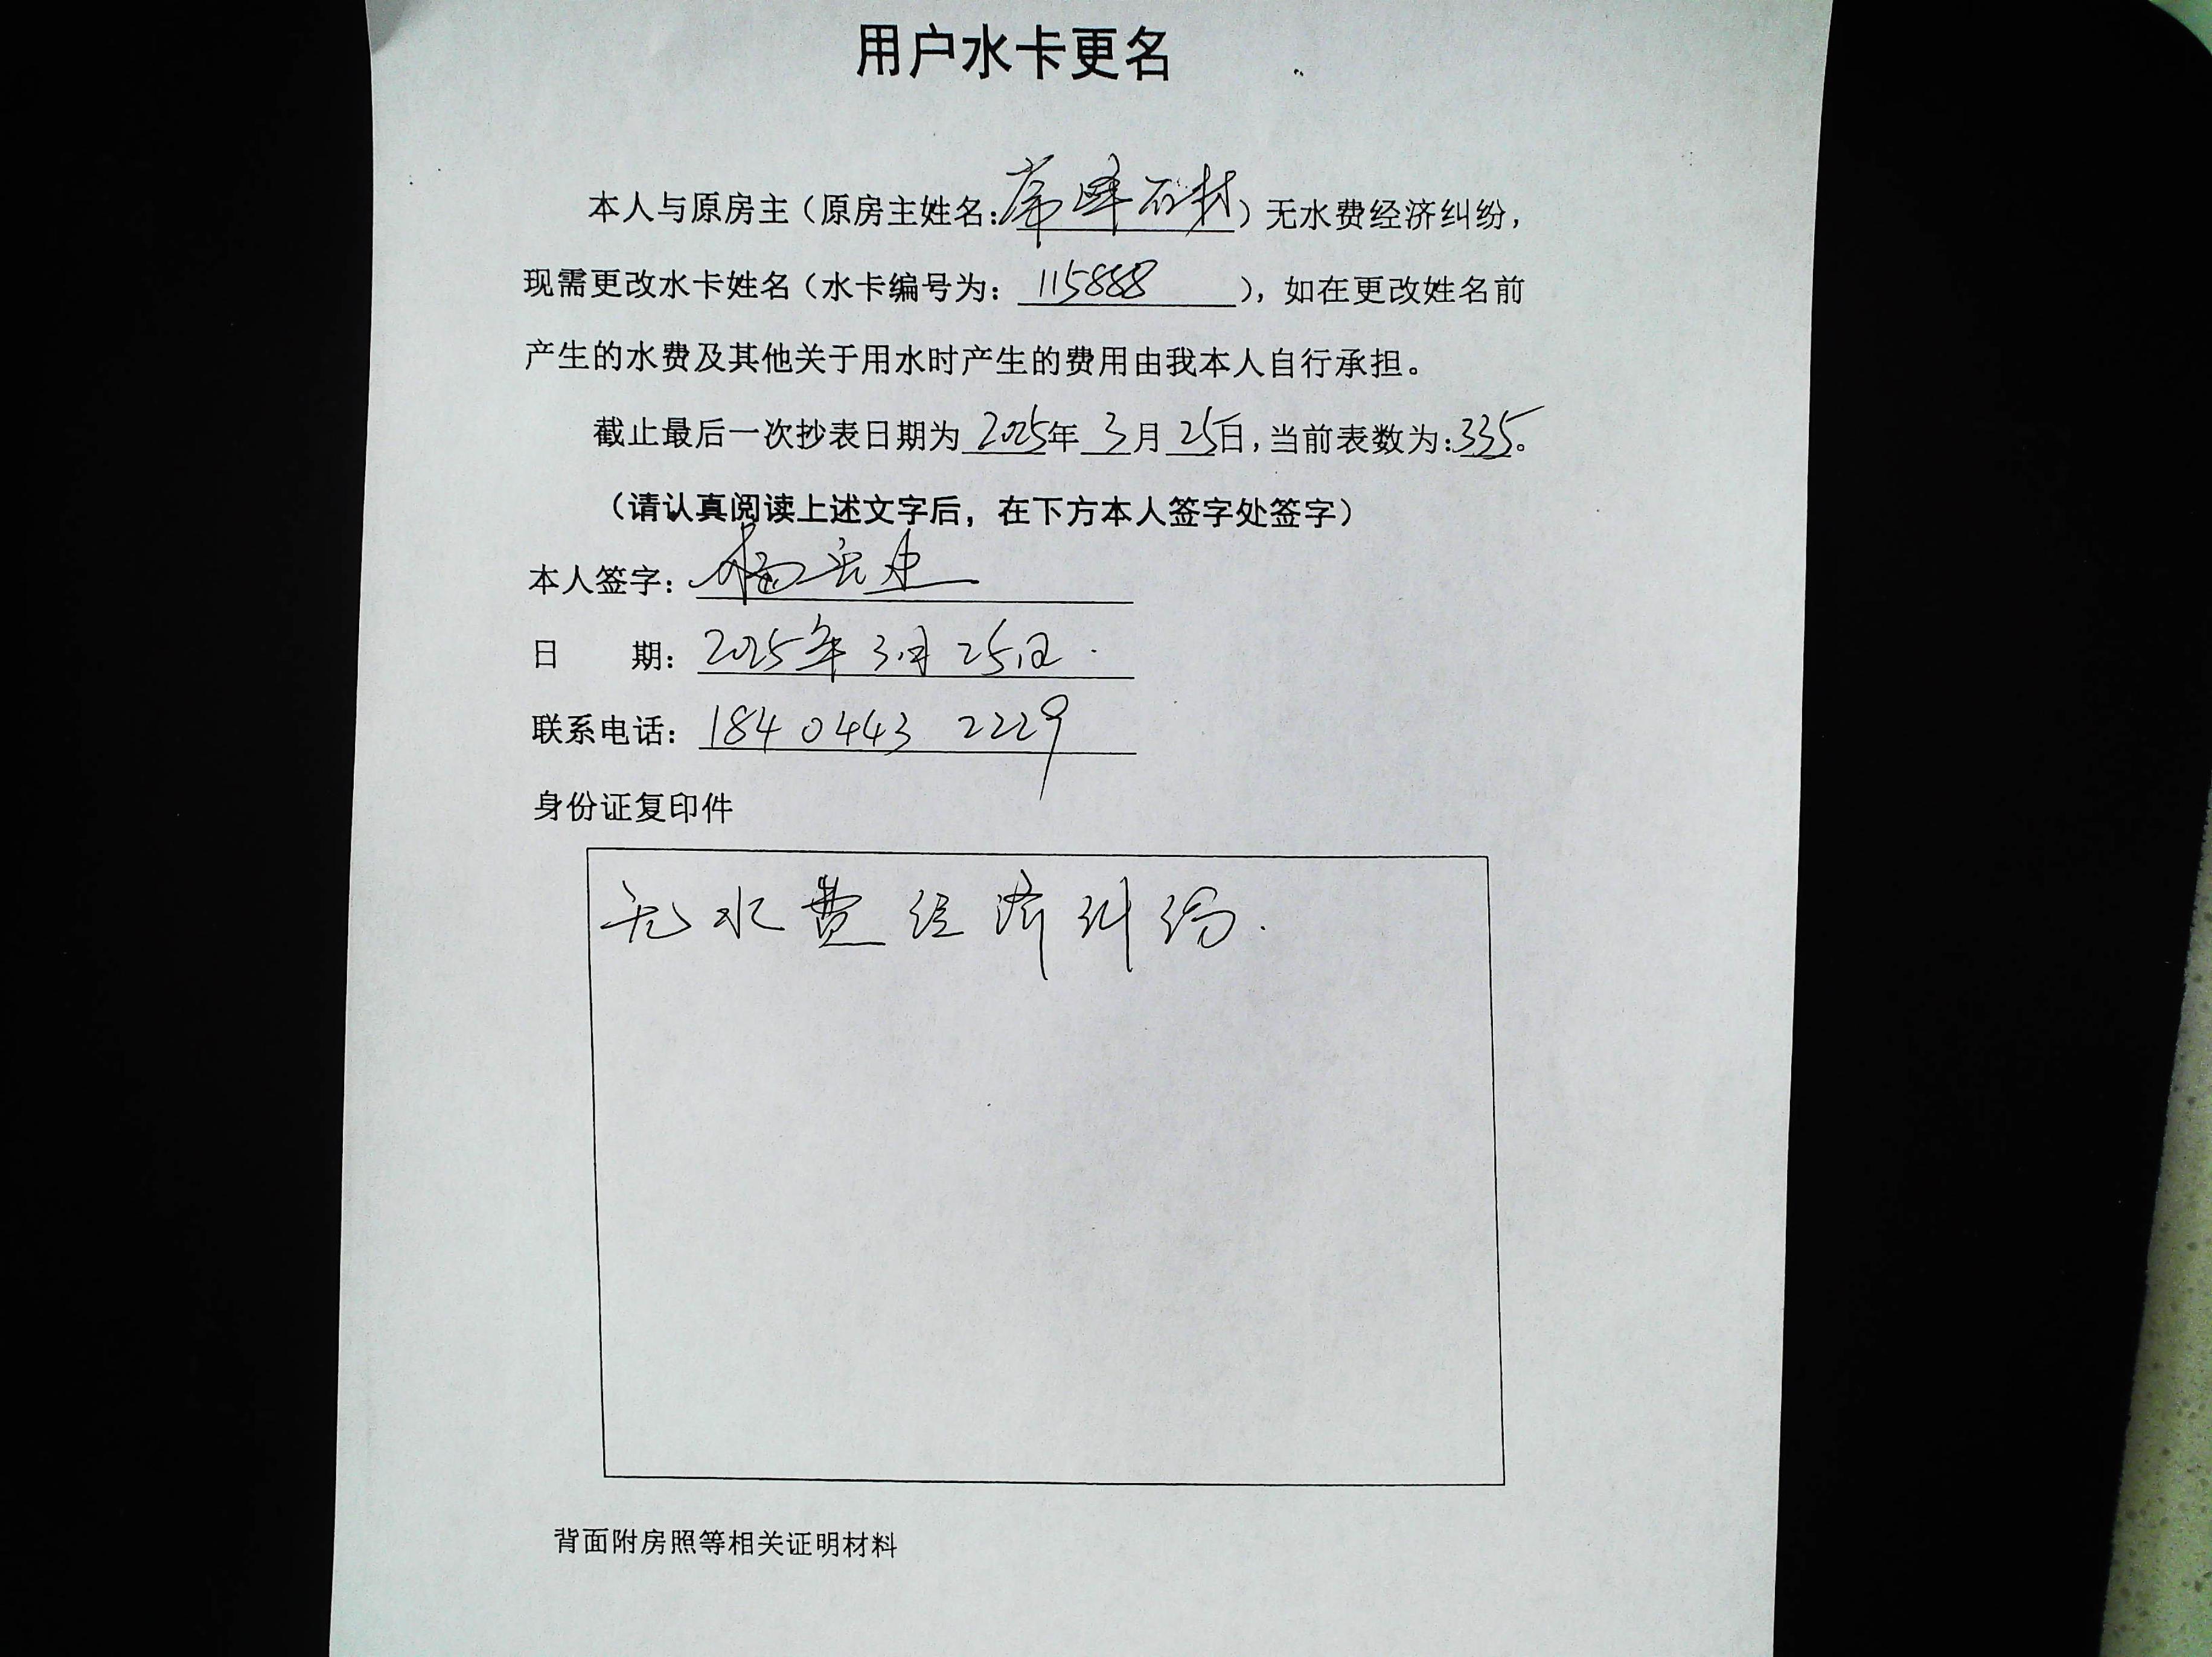 用户水卡更名
本人与原房主（原房主姓名：石材）无水费经济纠纷，
现需更改水卡姓名（水卡编号为：115888），如在更改姓名前
产生的水费及其他关于用水时产生的费用由我本人自行承担。
截止最后一次抄表日期为2025年3月25日，当前表数为：335。
（请认真阅读上述文字后，在下方本人签字处签字）
本人签字：杨
日 期：2025年3月25日.
联系电话：184 0443 2229
身份证复印件
无水费经济纠纷.
背面附房照等相关证明材料